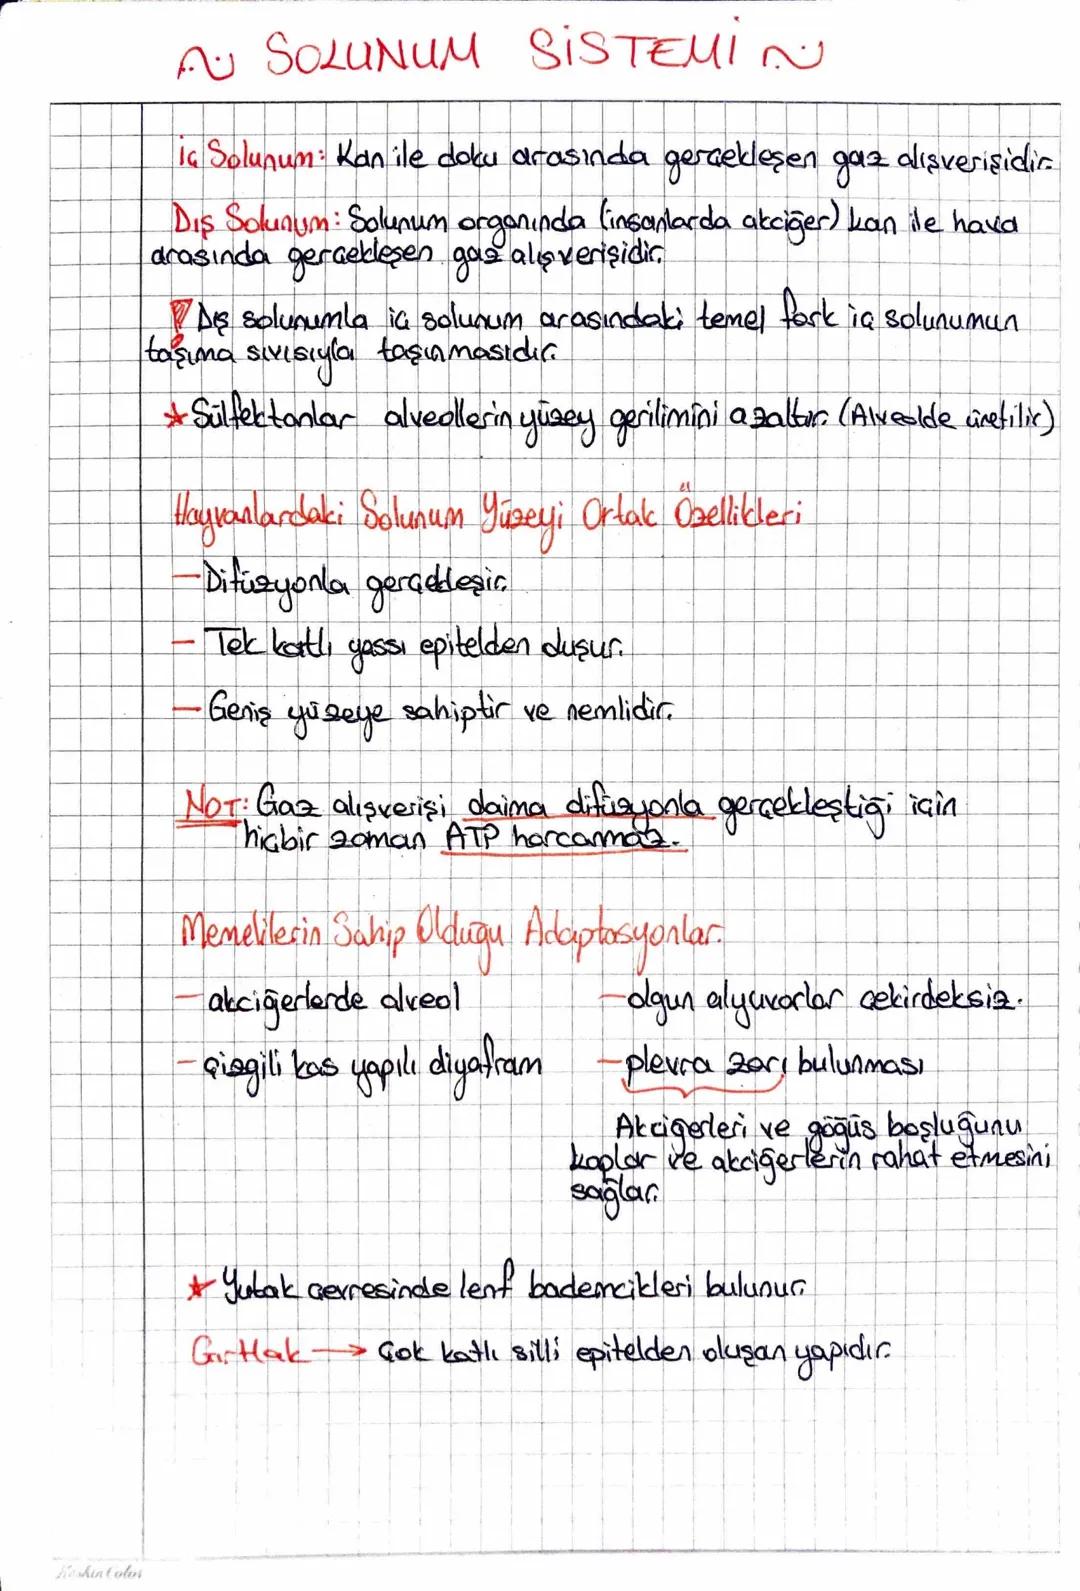 SOLUNUM SİSTEMİ
İç Solunum: Kan ile doku arasında gerçekleşen gaz alışverişidir.
Dış Solunum: Solunum organında (insanlarda akciğer) kan ile hava
arasında gerçekleşen gaz alışverişidir.
Dış solunumla iç solunum arasındaki temel fark iç solunumun
taşıma sıvısıyla taşınmasıdır.
★ Sülfektanlar alveollerin yüzey gerilimini azaltır. (Alveolde üretilir)
Hayvanlardaki Solunum Yüzeyi Ortak Özellikleri
- Difüzyonla gerçekleşir.
- Tek katlı yassı epitelden oluşur.
- Geniş yüzeye sahiptir ve nemlidir.
NOT: Gaz alışverişi daima difüzyonla gerçekleştiği için
hiçbir zaman ATP harcanmaz.
Memelilerin Sahip Olduğu Adaptasyonlar.
- akciğerlerde alveol
- olgun alyuvarlar çekirdeksiz.
- çizgili kas yapılı diyafram
- plevra zarı bulunması
Akciğerleri ve göğüs boşluğunu
kaplar ve akciğerlerin rahat etmesini
sağlar.
★ Yutak çevresinde lenf bademcikleri bulunur.
Gırtlak → Çok katlı silli epitelden oluşan yapıdır.
Keskin Color